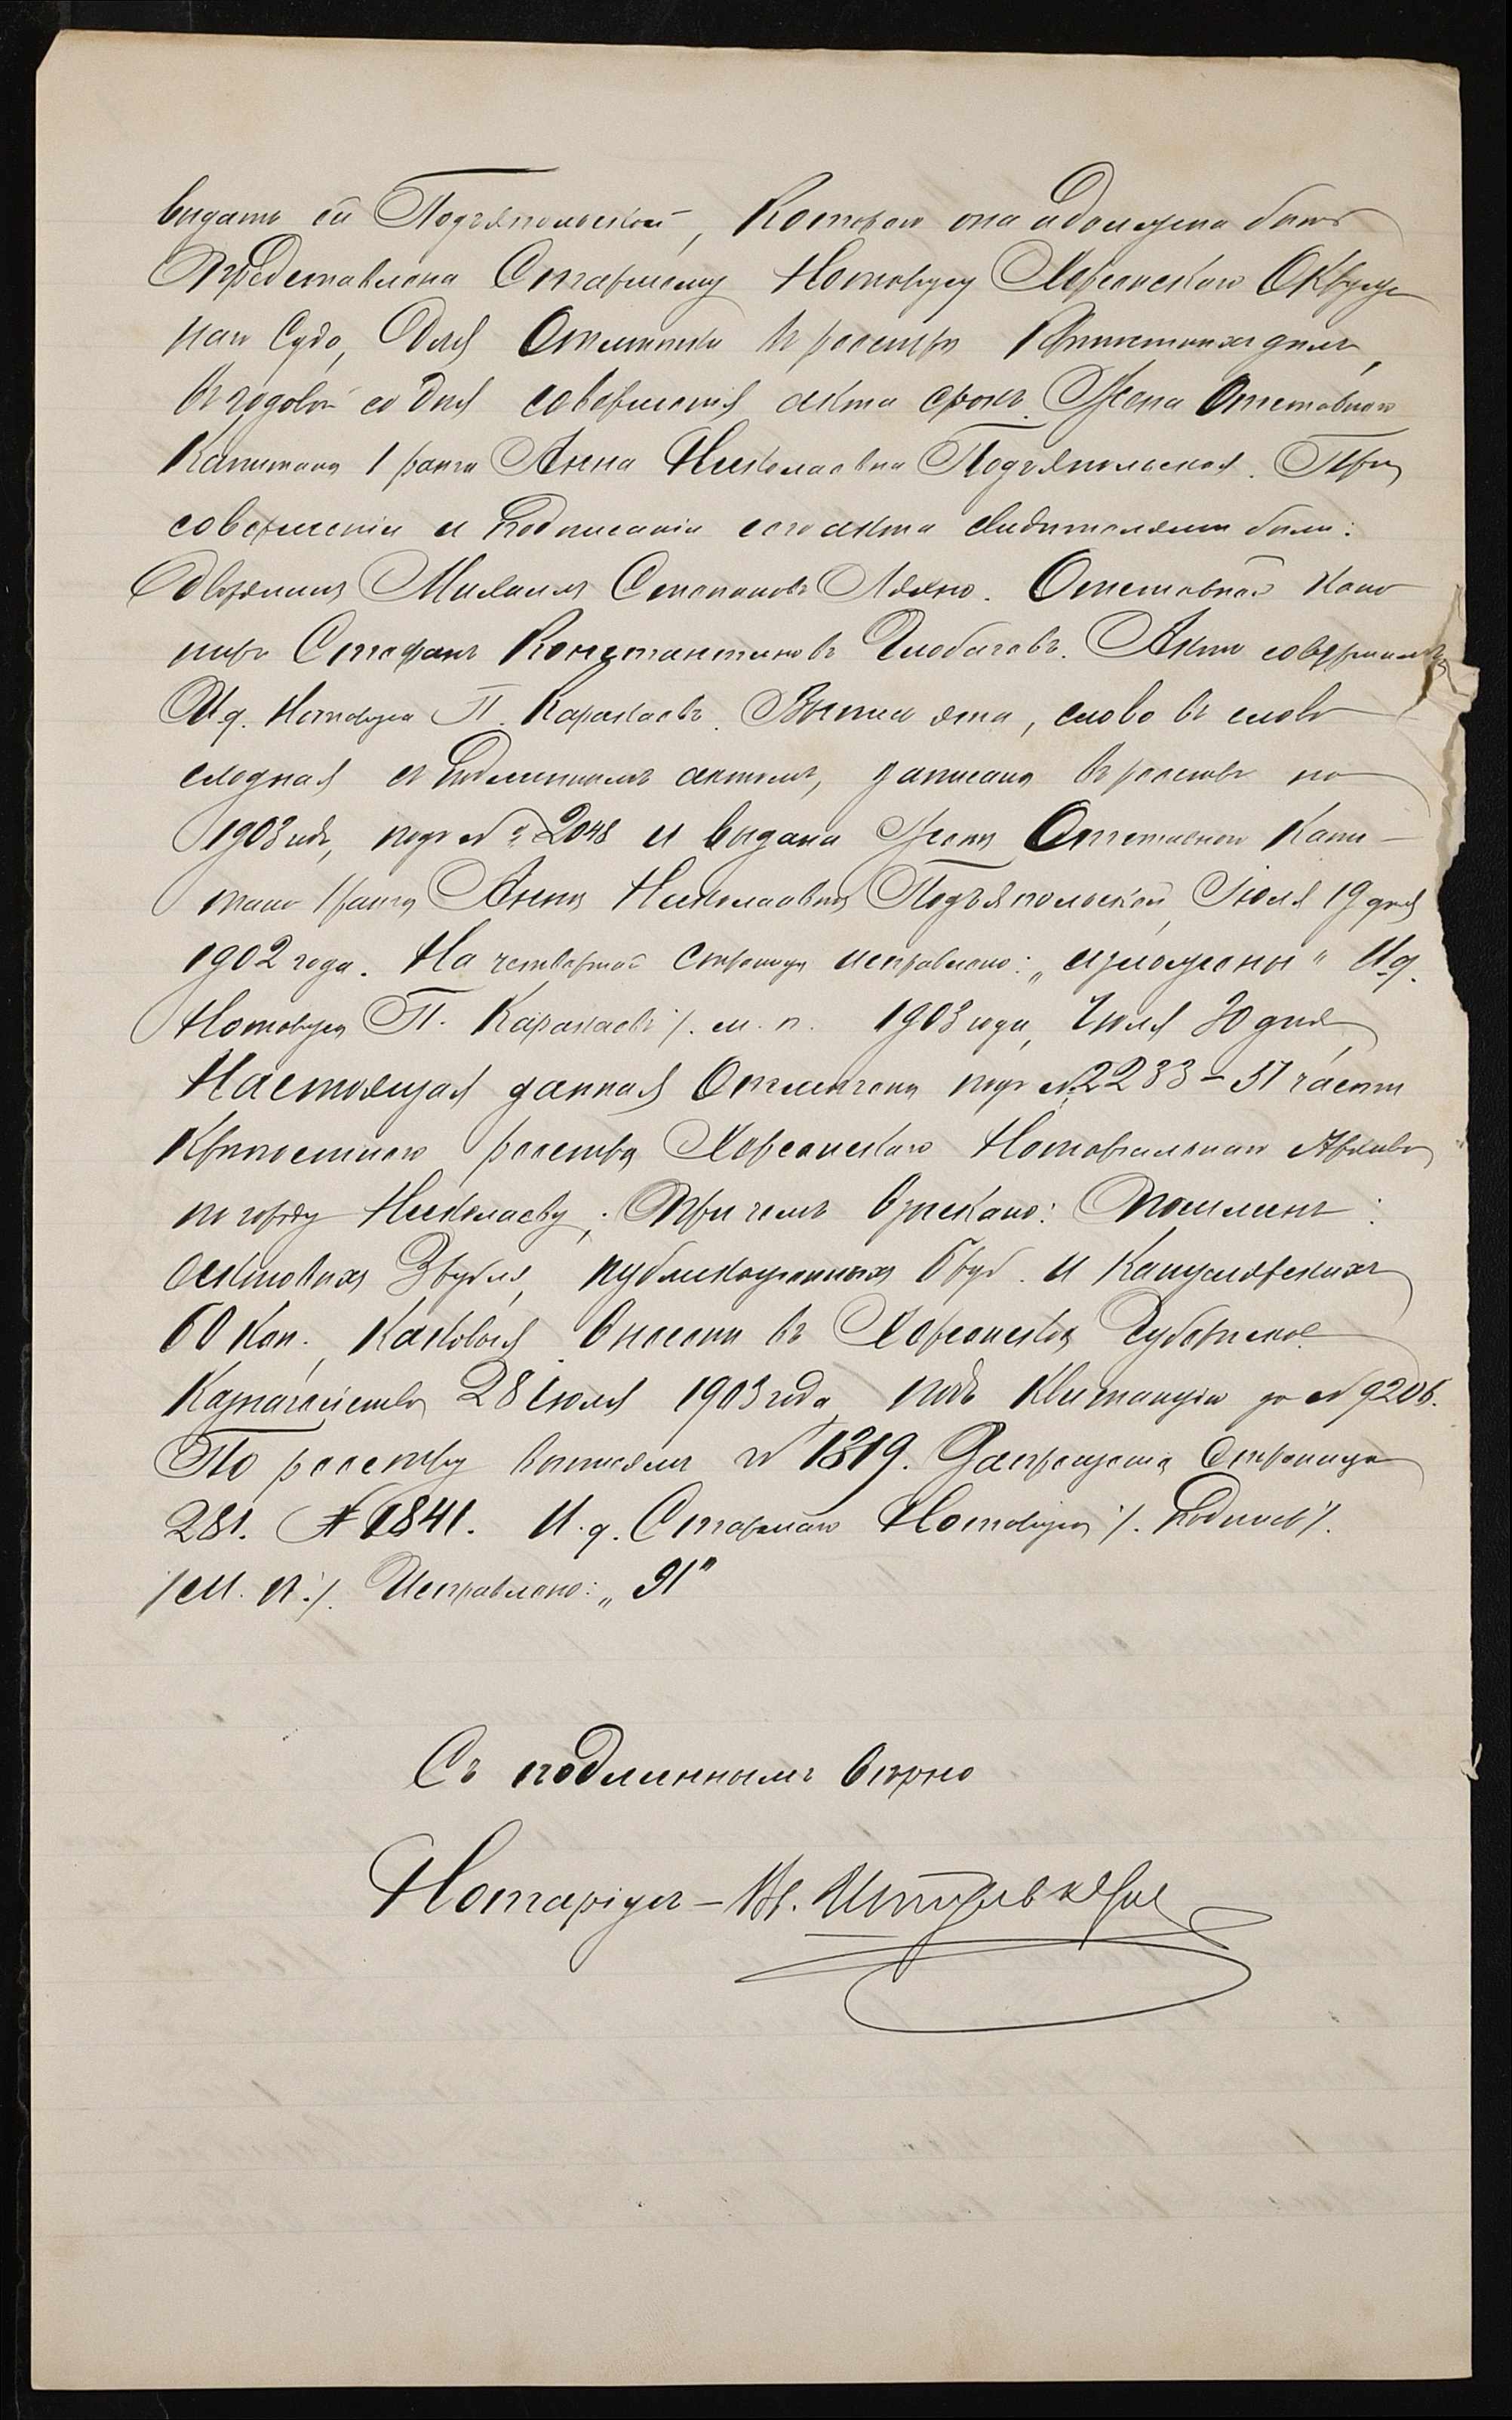 выдать ей Подъяпольской, которою она и должна быть
представлена Старшему Нотаріусу Херсонскаго Окруж-
наго Суда, для отмѣтки въ реестръ крѣпостныхъ дѣлъ,
въ годовой со дня совершенія акта срокъ. Жена отставного
Капитана 1 ранга Анна Николаевна Подъяпольская. При
совершеніи и подписаніи сего акта свидѣтелями были:
дворянинъ Михаилъ Степановъ Отставной кано-
ниръ Стефанъ Константиновъ Акта совершалъ
И. д. Нотаріуса П. Выпись эта, слово въ слово
сходная съ подлиннымъ актомъ, записана въ реестръ на
1903 годъ, подъ № 2048 и выдана женѣ отставного Капи-
тана 1 ранга Аннѣ Николаевнѣ Подъяпольской, Іюля 19 дня
1902 года. На четвертой страницѣ исправлено: „изложены" И. д.
Нотаріуса П. /. м. п. 1903 года, Іюля 30 дня
Настоящая данная отмѣчена подъ № 2233 – 31 части
крѣпостного реестра Херсонскаго Нотаріальнаго Архива
по городу Николаеву; При чемъ взыскано: пошлинъ:
актовыхъ 3 рубля, публикаціонныхъ 6 руб. и Канцелярскихъ
60 коп., каковыя внесены въ Херсонское Губернское
Казначейство 28 Іюля 1903 года подъ квитанцію за № 9206.
По реестру № 1319. страница
281. № 1841. И. д. Старшаго Нотаріуса /. Подпись /.
/ М. П. /. Исправлено: „31"
Съ подлиннымъ вѣрно
Нотаріусъ – Вл.